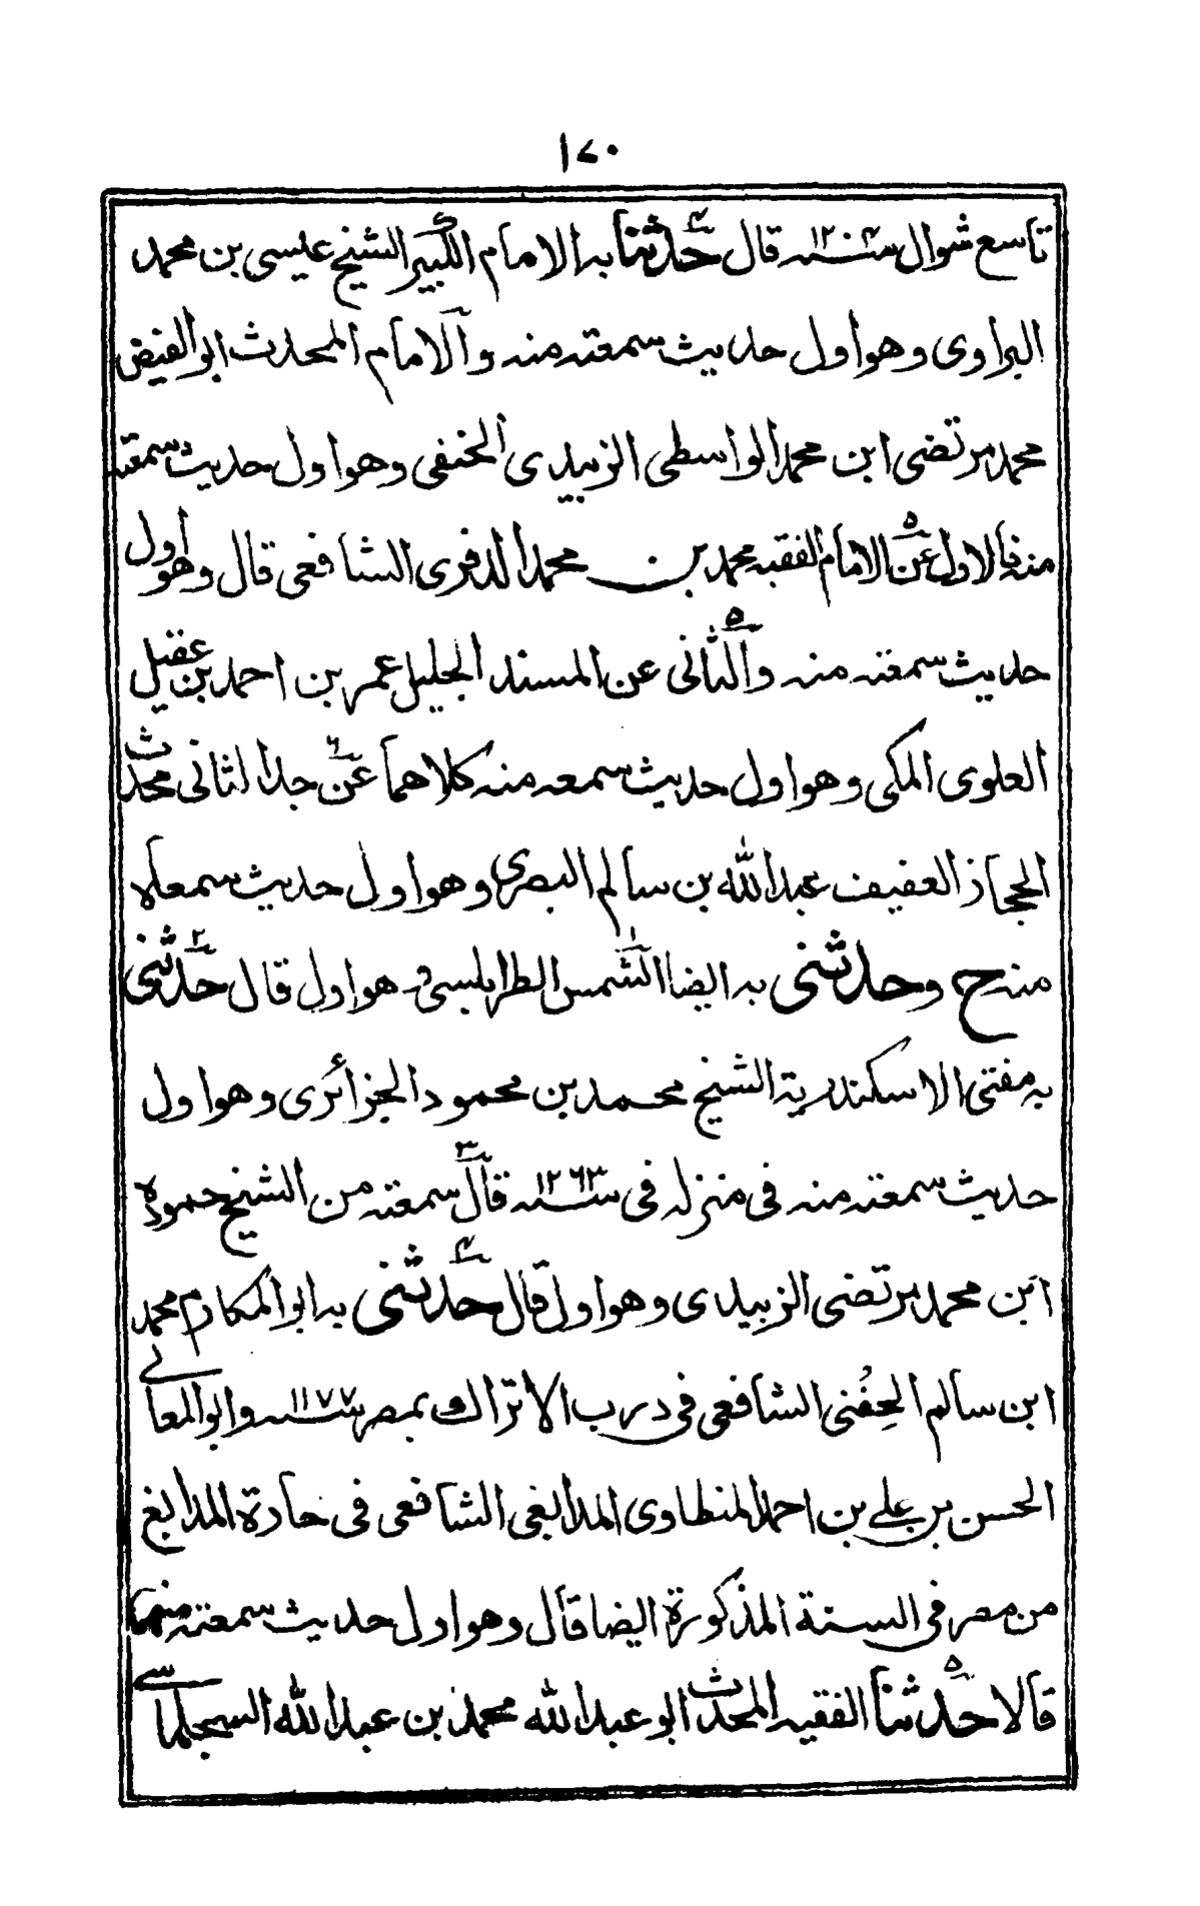 ١٧٠
تاسع شوال سنة ١٢٠٤ قال حدثنا به الامام الكبير الشيخ عيسى بن محمد
البراوى وهو اول حديث سمعته منه والامام المحدث ابو الفيض
محمد مرتضى ابن محمد الواسطى الزبيدى الحنفى وهو اول حديث سمعته
منه فالاول عن الامام الفقيه محمد بن محمد الدفرى الشافعى قال وهو اول
حديث سمعته منه والثانى عن المسند الجليل عمر بن احمد بن عقيل
العلوى المكى وهو اول حديث سمعه منه كلاهما عن جد الثانى محدث
الحجاز العفيف عبد الله بن سالم البصرى وهو اول حديث سمعاه
منه ح وحدثنى به ايضا الشمس الطرابلسى وهو اول قال حدثنى
به مفتى الاسكندرية الشيخ محمد بن محمود الجزائرى وهو اول
حديث سمعته منه فى منزله فى سنة ١٢٦٣ قال سمعته من الشيخ حموده
ابن محمد مرتضى الزبيدى وهو اول قال حدثنى به ابو المكارم محمد
ابن سالم الحِفْنى الشافعى فى درب الاتراك بمصر سنة ١١٧٧ وابو المعالى
الحسن بن على بن احمد المنطاوى المدابغى الشافعى فى حارة المدابغ
من مصر فى السنة المذكورة ايضا قال وهو اول حديث سمعته منهما
قالا حدثنا الفقيه المحدث ابو عبد الله محمد بن عبد الله السجلماسى